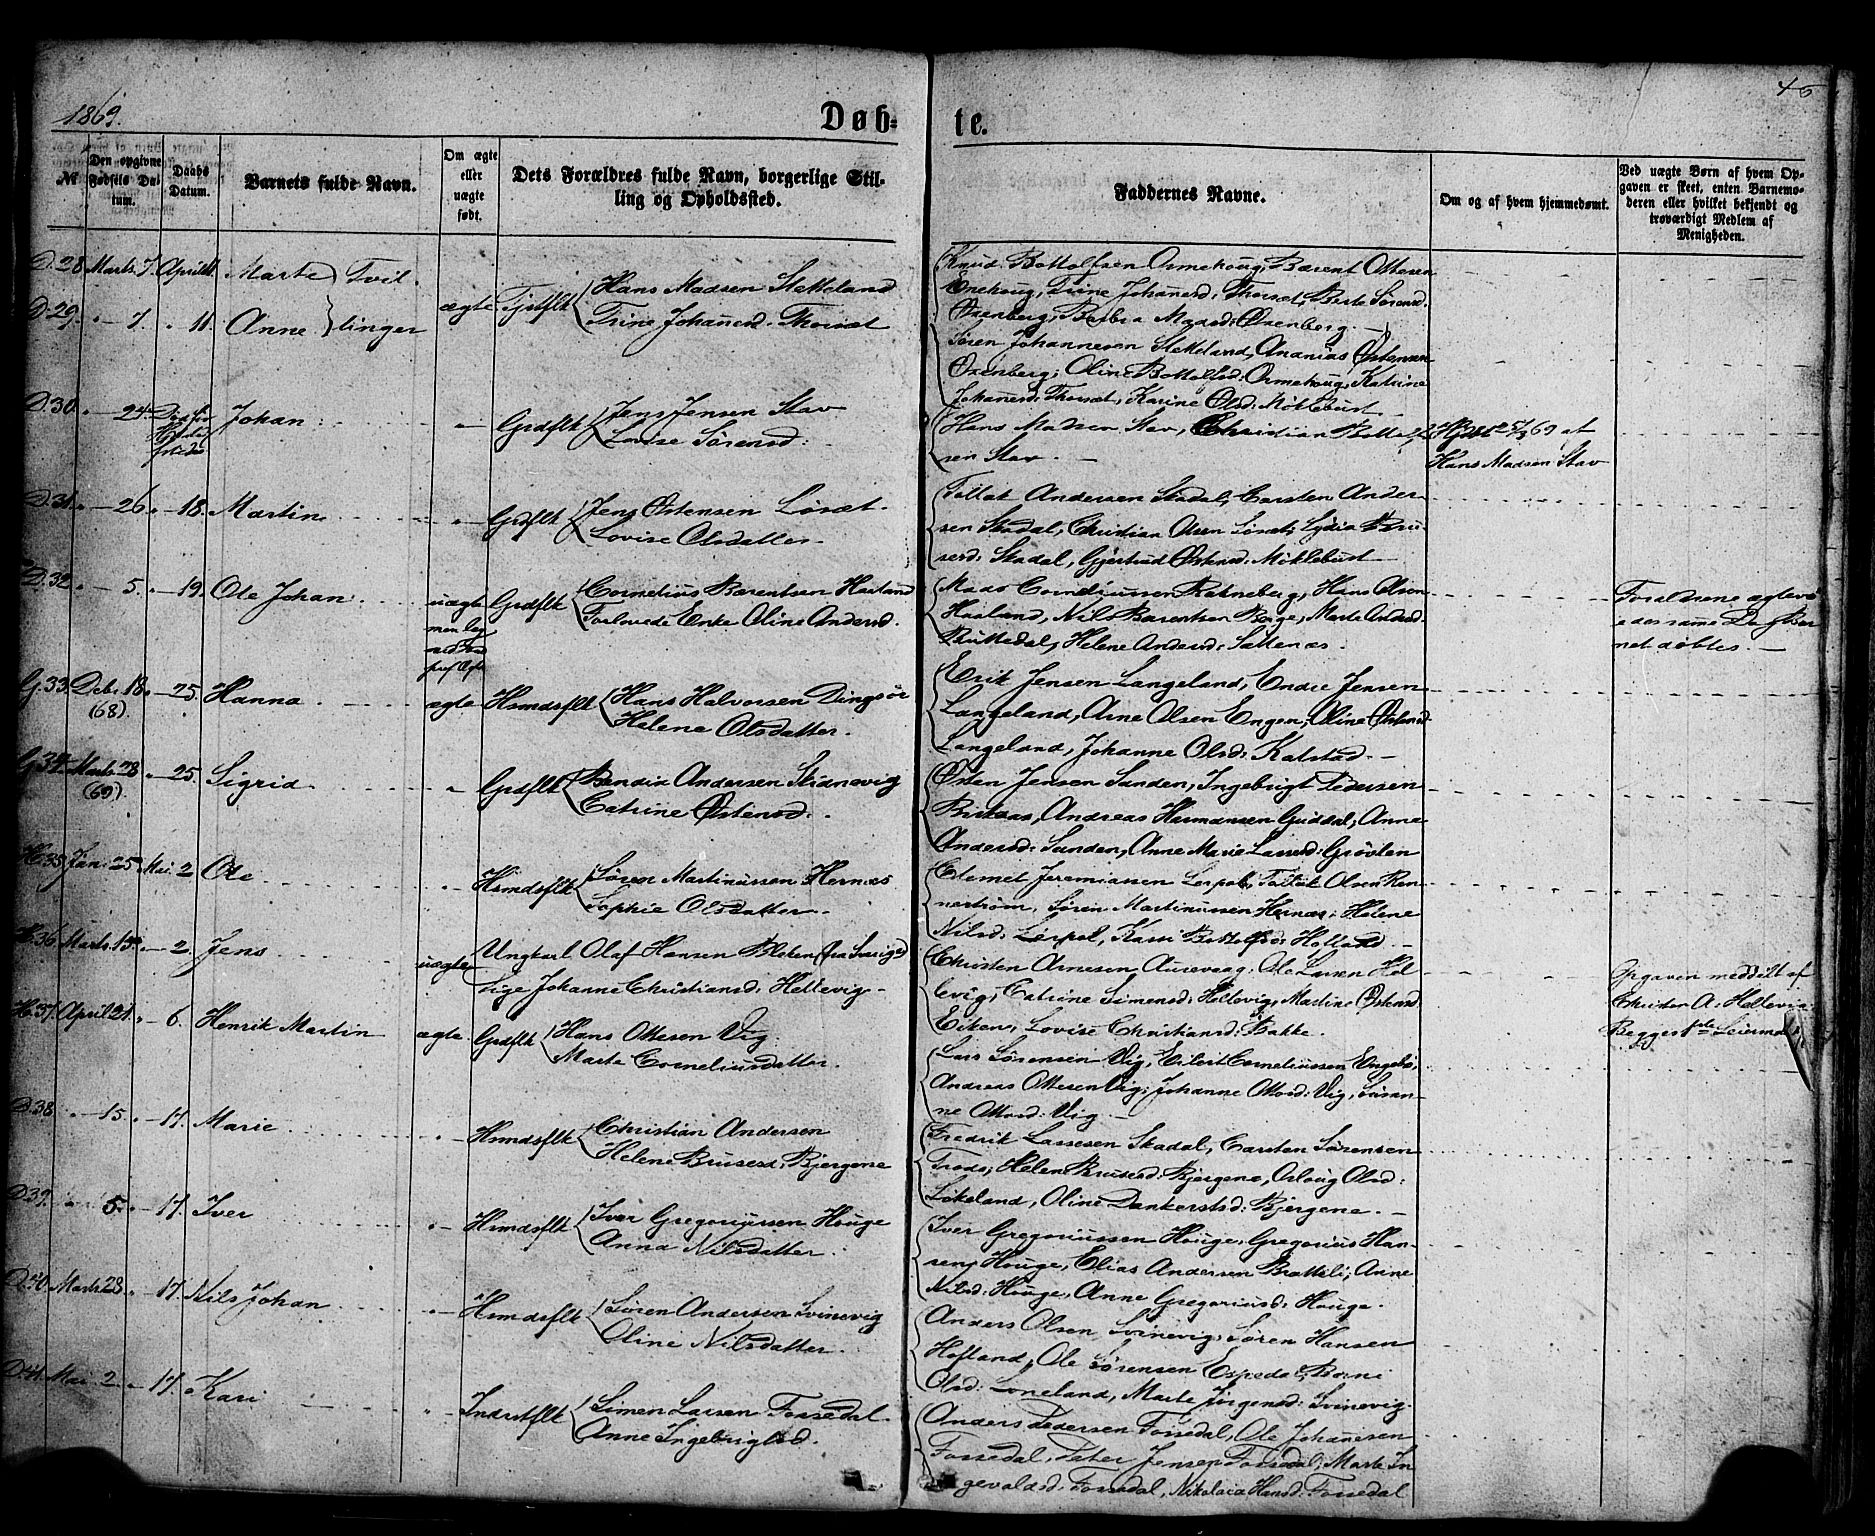 1869.
Døb-
te.
46
№
Den opgivne Fødsels Datum.
Daabs Datum.
Barnets fulde Navn.
Om ægte eller uægte født.
Dets Forældres fulde Navn, borgerlige Stilling og Opholdssted.
Faddernes Navne.
Om og af hvem hjemmedøbt.
Ved uægte Børn af hvem Opgaven er skeet, enten Barnemoderen eller hvilket bekjendt og troværdigt Medlem af Menigheden.
D.28 Marts 7. April 11. Marte } Tvil-
D.29. " 7. " 11. Anne } linger
ægte Tjstflk
Hans Madsen Stekeland
Trine Johansd. Thorsæt
Knud Bottolfsen Ormehoug, Bærent Ottesen
Enehoug, Trine Johansd: Thorsæt, Berte Sørensd.
Oxenberg, Barbra Madsd: Oxenberg. —
Søren Johannesen Stekeland, Ananias Østensen
Oxenberg; Oline Bottolfsd: Ormehoug, Katrine
Johansd: Thorsæt, Karine Olsd: Møklebust —
D.30. " 24 Johan
" Grdflk
Jens Jensen Stav
Lovise Sørensd:
Hans Madsen Stav, Christian Bottolf-
sen Stav. —
69 af
Hans Madsen Stav
D.31. " 26. " 18. Martin
" Grdflk
Jens Østensen Løsæt.
Lovise Olsdatter.
Tollak Andersen Skadal, Carsten Ander-
sen Skadal, Christian Olsen Løsæt, Lydia Bru-
sesd: Skadal, Gjertrud Østensd: Møklebust —
D.32 " 5. " 19. Ole Johan.
uægte Grdflk
Cornelius Bærentsen Hauland
Forlovede Enke Oline Andersd.
Mads Corneliussen Rakneberg, Hans Olsen
Hauland, Nils Bærentsen Berge, Marte Andersd
Bruttedal, Helene Andersd: Sættenes.
Forældrene
samme Dag Bar-
net døbtes. —
G.33. Debr 18. " 25. Hanna
(68).
ægte Hsmdsflk
Hans Halvorsen Dingsør
Helene Olsdatter.
Erik Jensen Langeland, Endre Jensen
Langeland, Arne Olsen Engen, Oline Østensd
Langeland, Johanne Olsd: Kalstad. —
G.34. Marts 28 " 25. Sigrid
(69).
" Grdflk
Bendix Andersen Skidnevig
Catrine Østensd.
Østen Jensen Sanden, Ingebrigt Pedersen
Birknes, Andreas Hermansen Guddal, Anne
Andersd: Sanden, Anne Marie Lassesd: Grøvlen
H.35. Jan: 25. Mai. 2 Ole
" Hsmdsflk
Søren Martinussen Hernes
Sophie Olsdatter.
Clemet Jeremiassen Lespol, Tollak Olsen Ren-
nestrøm, Søren Martinussen Hernes, Helene
Nilsd: Lespol, Kari Bottolfsd: Holland —
H.36 Marts 15. " 2. Jens
uægte
Ungkarl Olaf Hansen Bleken (fra Sverige)
Pige Johanne Christiansd: Hellevig —
Christen Arnesen Aurevaag, Ole Larsen Hel-
levig, Catrine Simensd: Hellevig, Martine Østensd
Eiken, Lovise Christiansd: Bakke.
Opgaven meddelt af
Christen A: Hellevig
Begges 1ste Leiermaal
H.37. April 21. " 6. Henrik Martin
ægte Grdflk
Hans Ottesen Vig.
Marte Corneliusdatter.
Lars Sørensen Vig, Eilert Corneliussen Engebø,
Andreas Ottesen Vig, Johanne Ottesd: Vig, Susan-
ne Ottesd: Vig. —
D.38 " 15. " 17. Marie
" Hsmdsflk
Christian Andersen
Helene Brusesd. Bjergene
Fredrik Lassesen Skadal, Carsten Sørensen
Helene Brusesd: Bjergene, Oslaug Olsd:
Løkeland, Oline Dankertsd: Bjergene. —
D.39. " 5. " 17. Iver
" Hsmdsflk
Iver Gregoriussen Houge
Anna Nilsdatter
Iver Gregoriussen Houge, Gregorius Han-
sen Houge, Elias Andersen Bratteli, Anne
Nilsd: Houge, Anne Gregoriusd: Houge.
D.40. Marts 28. " 17. Nils Johan
" Hsmdsflk
Søren Andersen Svinevig
Oline Nilsdatter.
Anders Olsen Svinevig, Søren Hansen
Hofland, Ole Sørensen Espedal, Børni
Olsd: Loneland, Marte Jørgensd: Svinevig.
D.41. Mai 2. " 17. Kari
" Indrstflk
Simen Larsen Fossedal
Anne Ingebrigtsd.
Anders Pedersen Fossedal, Ole Johannesen
Fossedal, Peter Jensen Fossedal, Marte In-
gevaldsd: Fossedal, Nikolaia Hansd: Fossedal